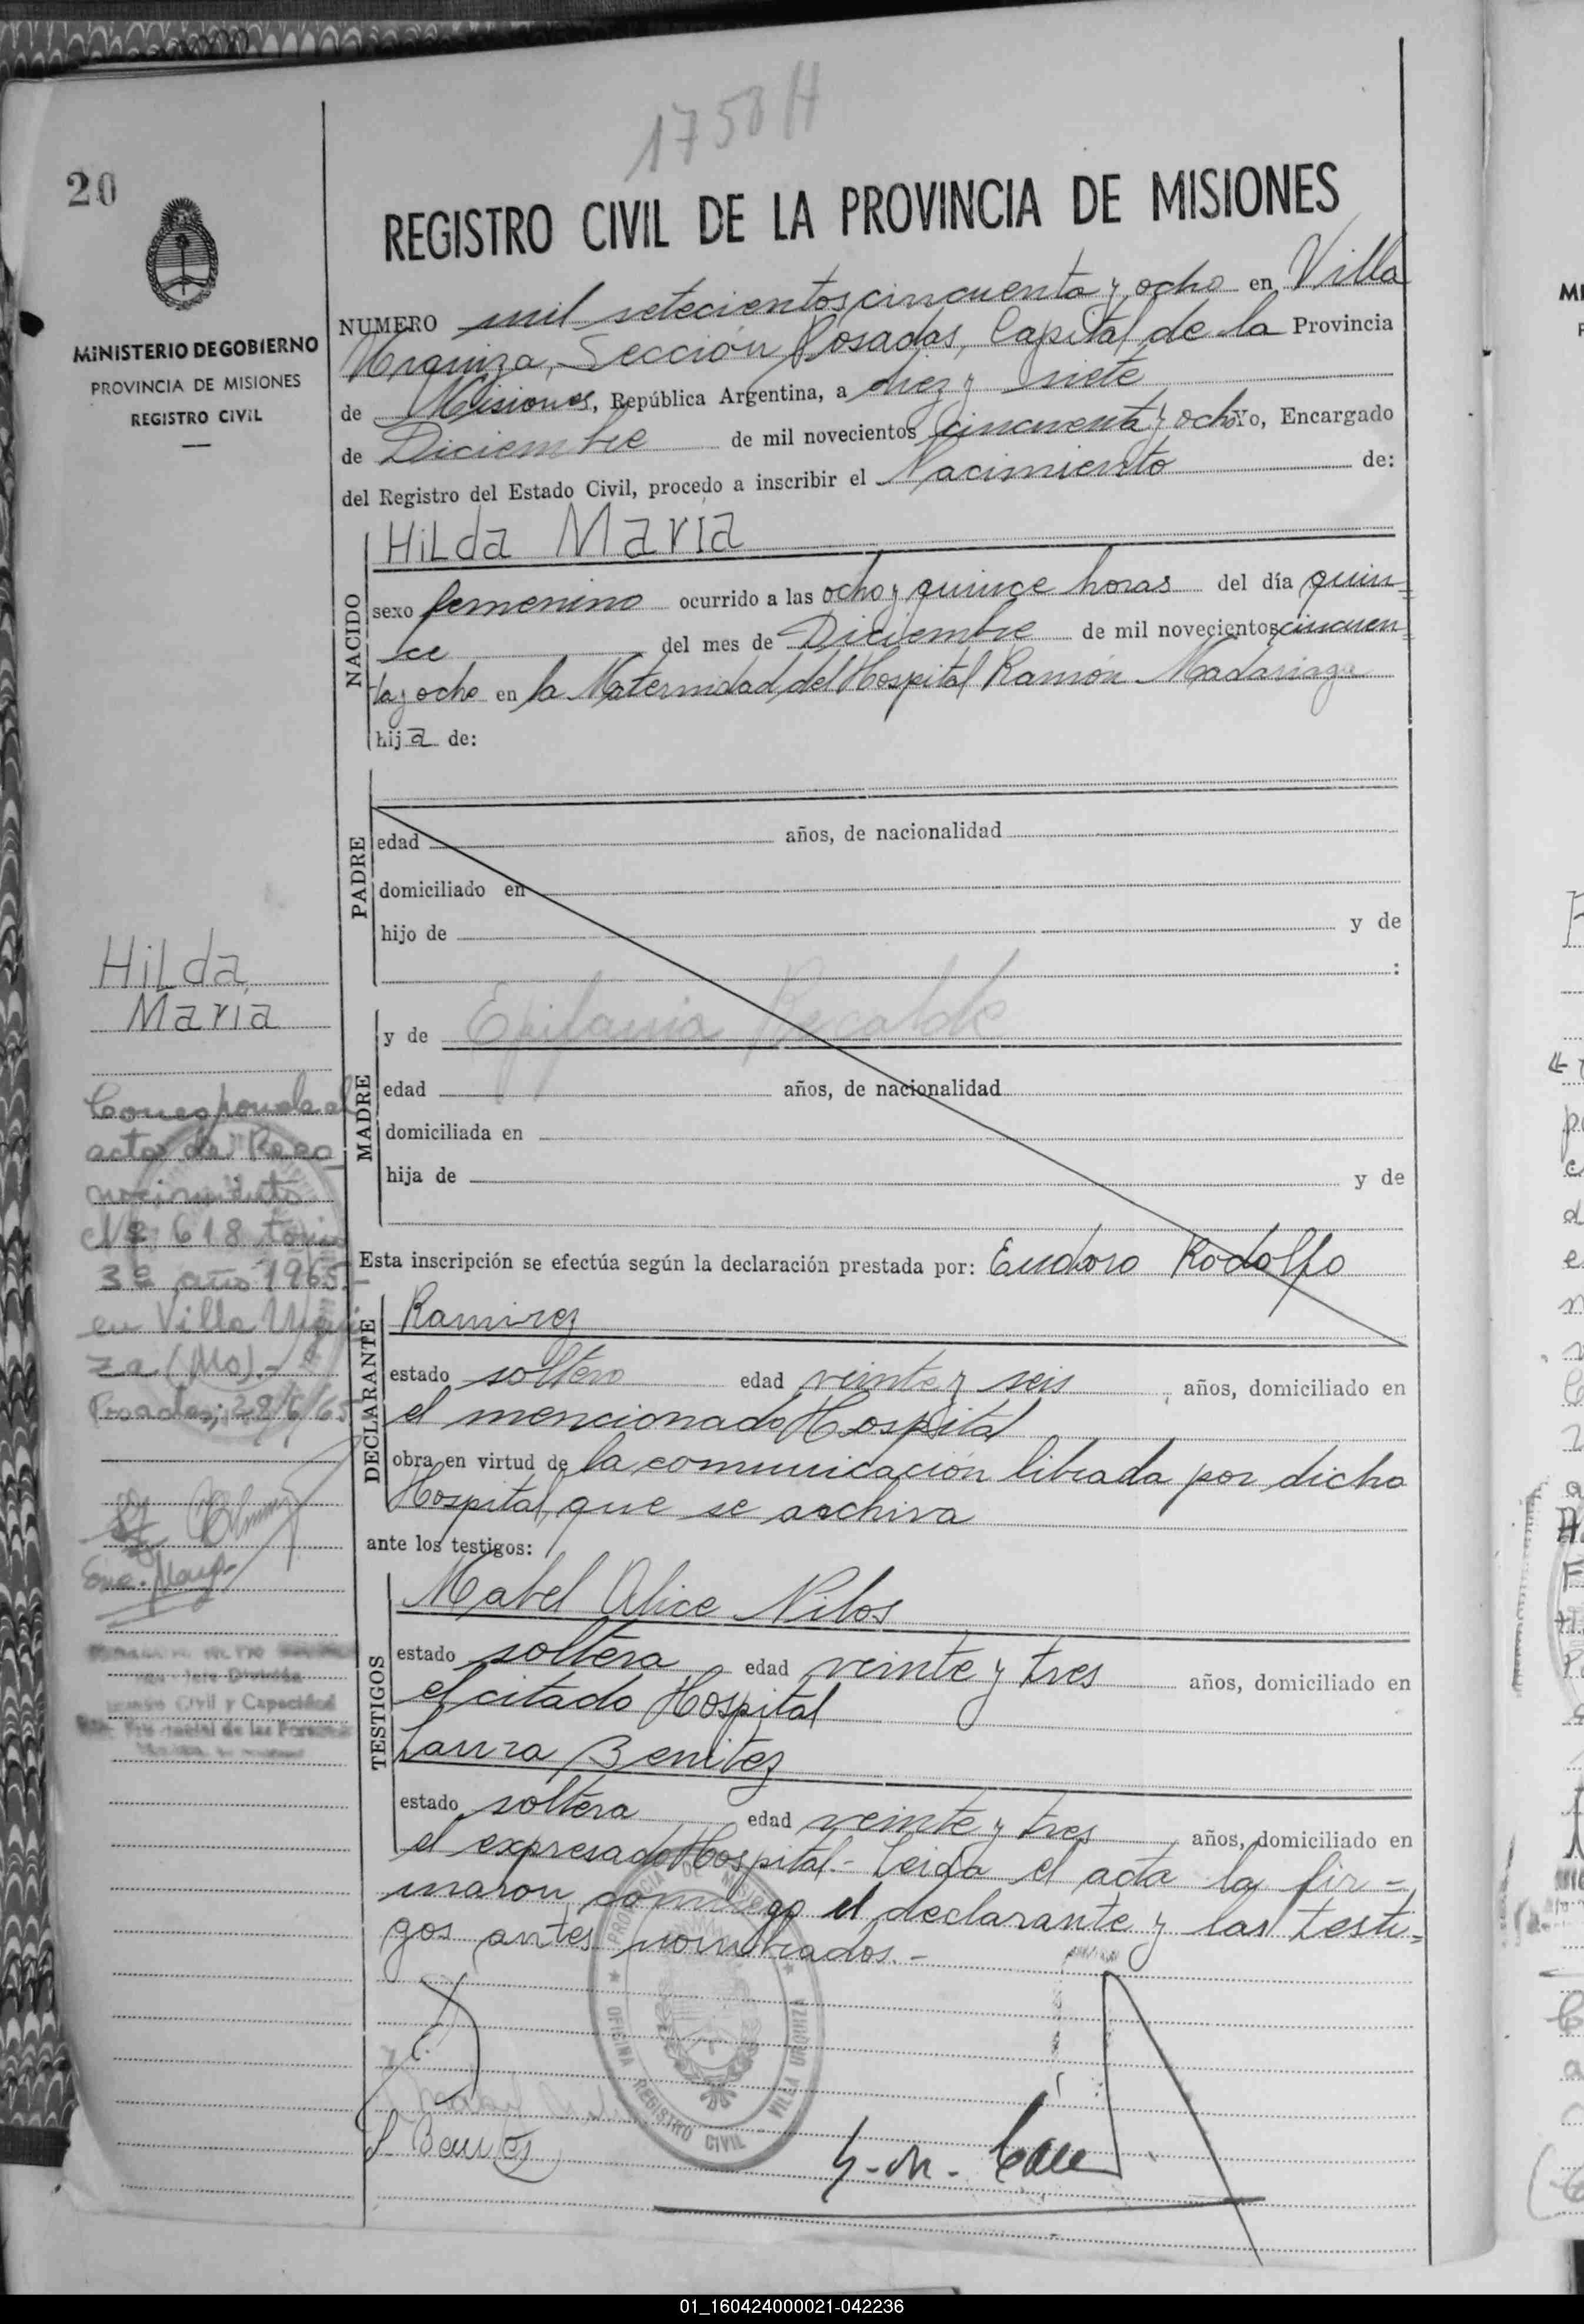 1758 H
20
REGISTRO CIVIL DE LA PROVINCIA DE MISIONES
MINISTERIO DE GOBIERNO
PROVINCIA DE MISIONES
REGISTRO CIVIL
NUMERO mil setecientos cincuenta y ocho en Villa
Urquiza, Sección Posadas, Capital de la Provincia
de Misiones, República Argentina, a diez y siete
de Diciembre de mil novecientos cincuenta y ocho Yo, Encargado
del Registro del Estado Civil, procedo a inscribir el Nacimiento de:
NACIDO
HiLda María
sexo femenino ocurrido a las ocho y quince horas del día quin=
ce del mes de Diciembre de mil novecientos cincuen=
ta y ocho en la Maternidad del Hospital Ramón Madariaga
hija de:
PADRE
edad años, de nacionalidad
domiciliado en
hijo de y de
:
MADRE
y de Epifania Recalde
edad años, de nacionalidad
domiciliada en
hija de y de
Esta inscripción se efectúa según la declaración prestada por: Eudoro Rodolfo
DECLARANTE
Ramirez
estado soltero edad veinte y seis años, domiciliado en
el mencionado Hospital
obra en virtud de la comunicación librada por dicho
Hospital, que se archiva
ante los testigos:
TESTIGOS
Mabel Alice Nilos
estado soltera edad veinte y tres años, domiciliado en
el citado Hospital
Laura Benitez
estado soltera edad veinte y tres años, domiciliado en
el expresado Hospital.- Leida el acta la fir=
maron conmigo el declarante y las testi=
gos antes nombrados.-
HiLda
María
Corresponde al
acta de Reco
nocimiento
Nº 618 tomo
3º año 1965
en Villa Urqui
za (Ms).-
Posadas, 28/6/65
Civil y Capacidad
PROVINCIA DE MISIONES
OFICINA REGISTRO CIVIL VILLA URQUIZA
L Benitez
01_160424000021-042236